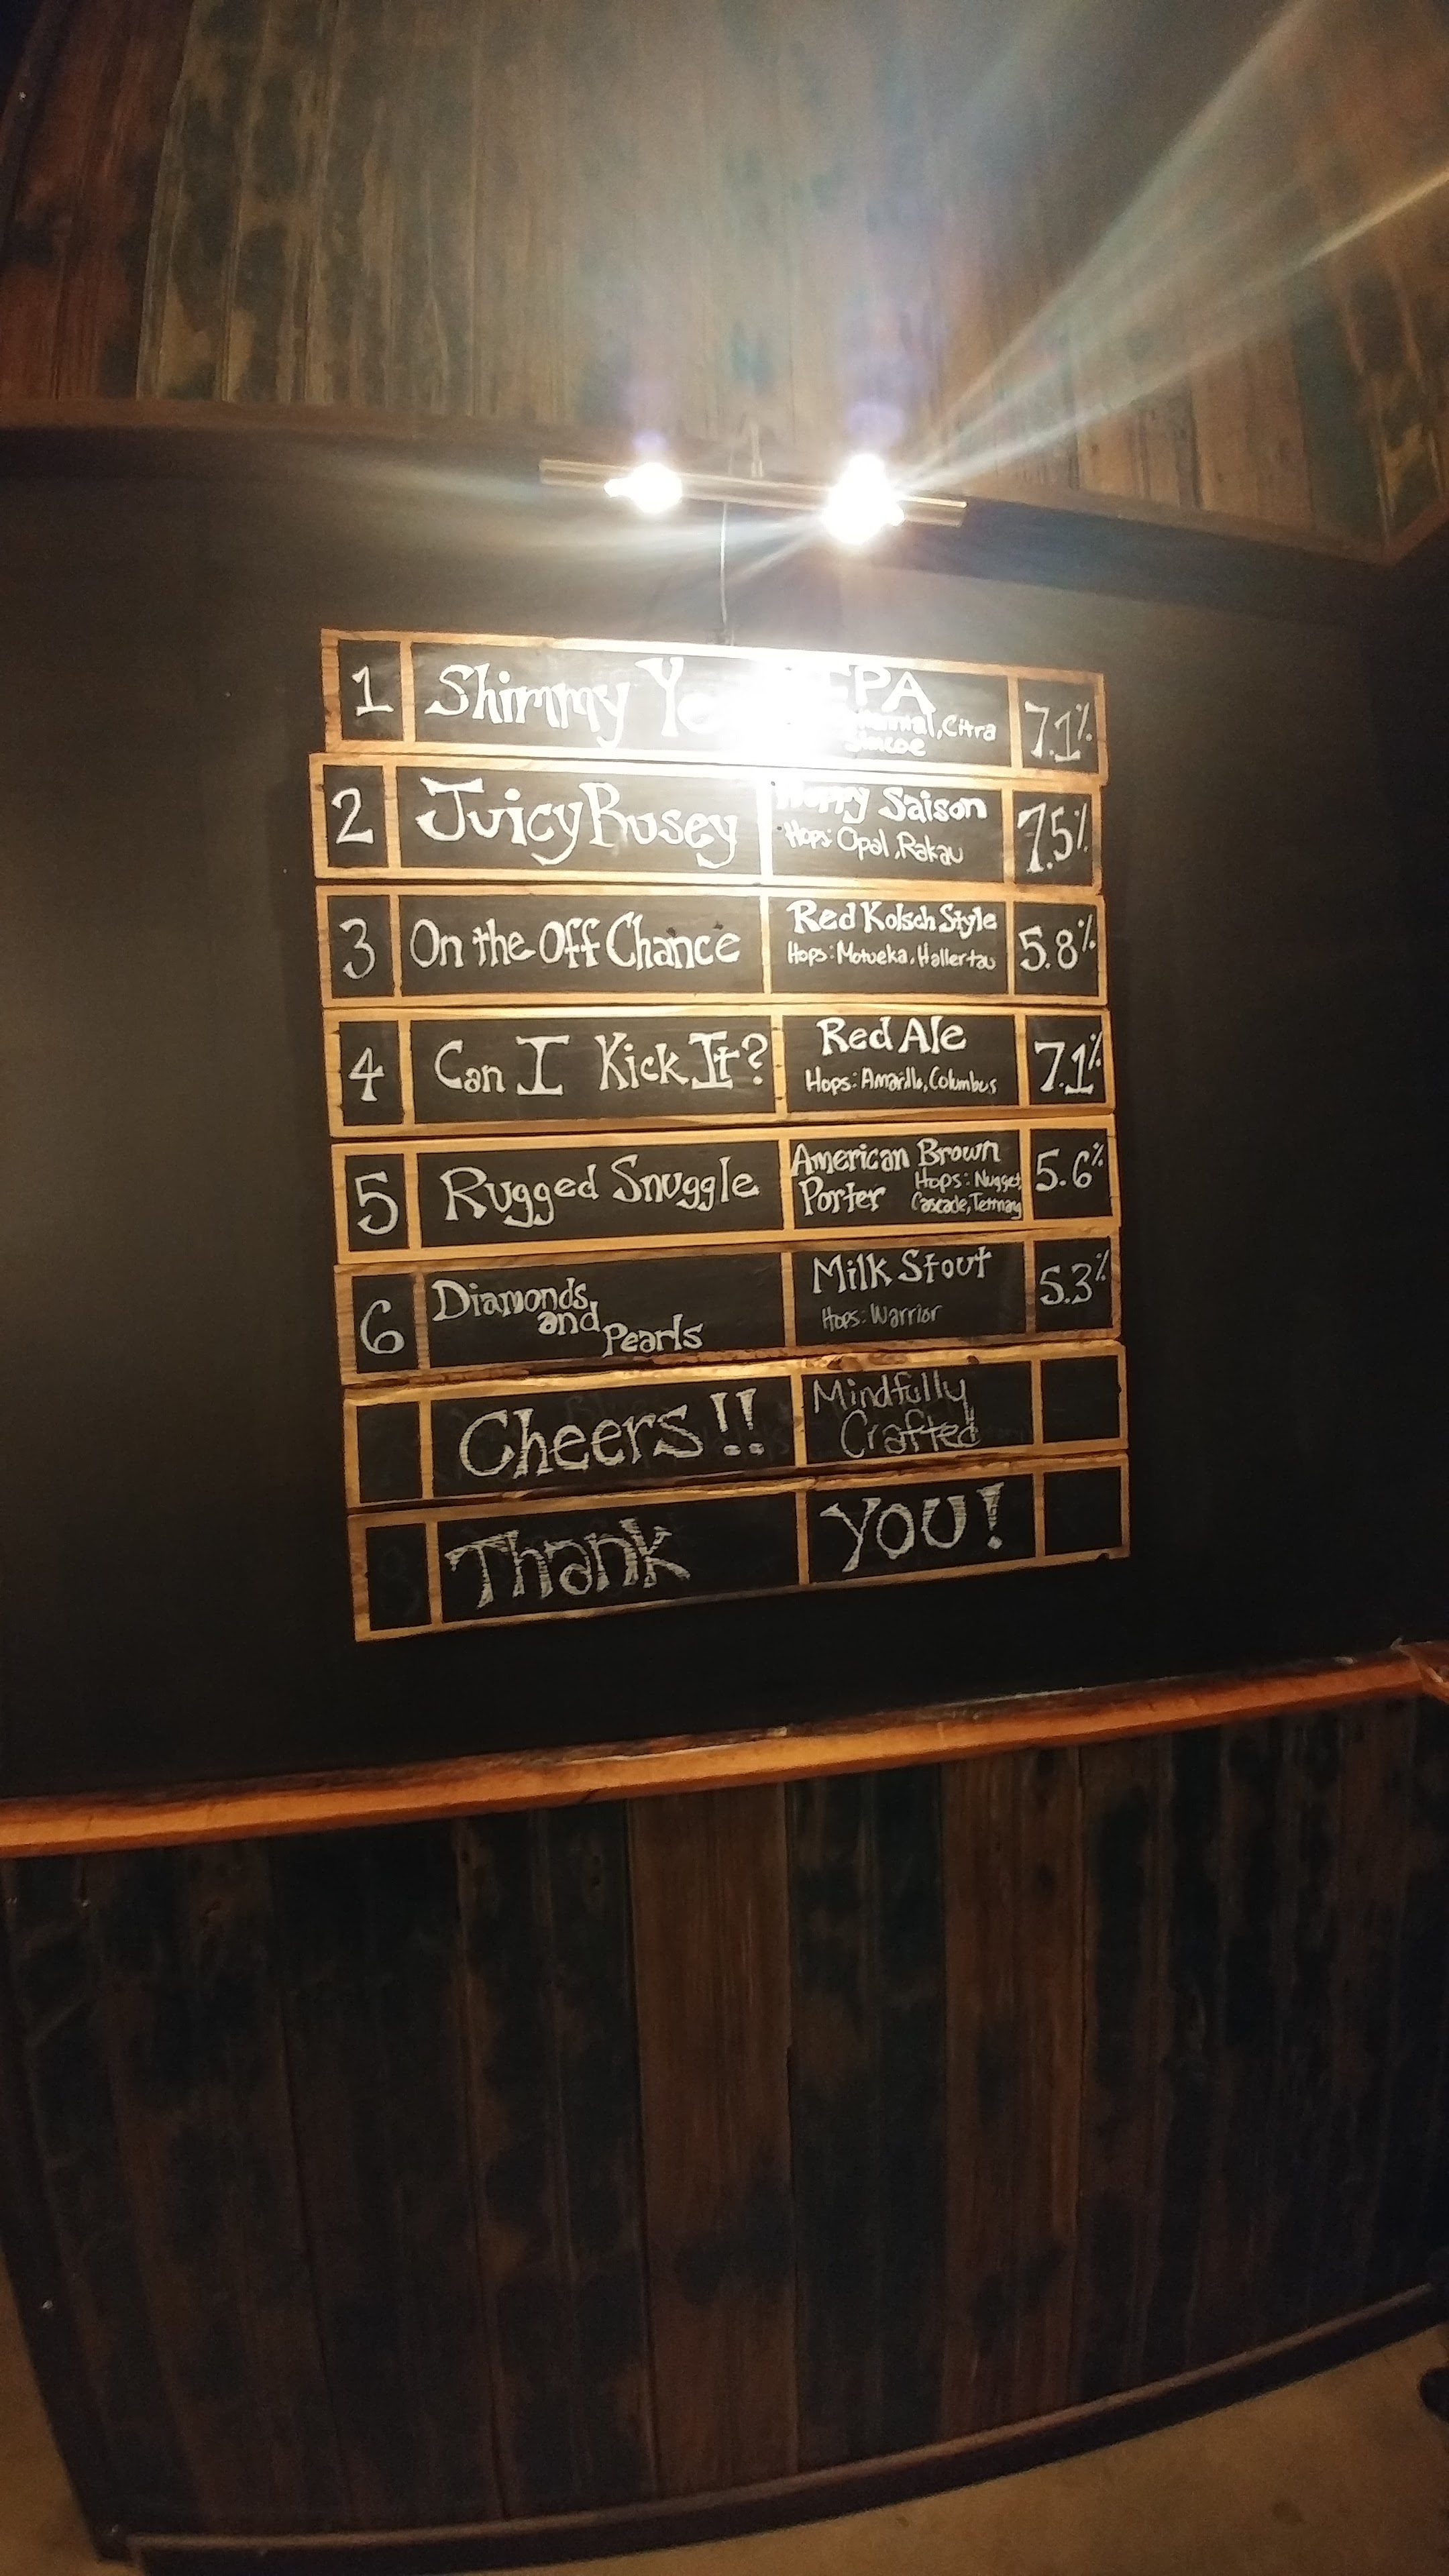 1 Shimmy
PA 7.1%
Citra
Simcoe
2 Juicy Busey Saison 7.5%
Hops: Opal, Rakau
3 On the Off Chance Red Kolsch Style 5.8%
Hops: Motueka, Hallertau
4 Can I Kick It? Red Ale 7.1%
Hops: Amarillo, Columbus
5 Rugged Snuggle American Brown 5.6%
Porter Hops: Nugget,
Cascade, Tettnang
6 Diamonds Milk Stout 5.3%
and Hops: Warrior
Pearls
Cheers!! Mindfully
Crafted
Thank YOU!